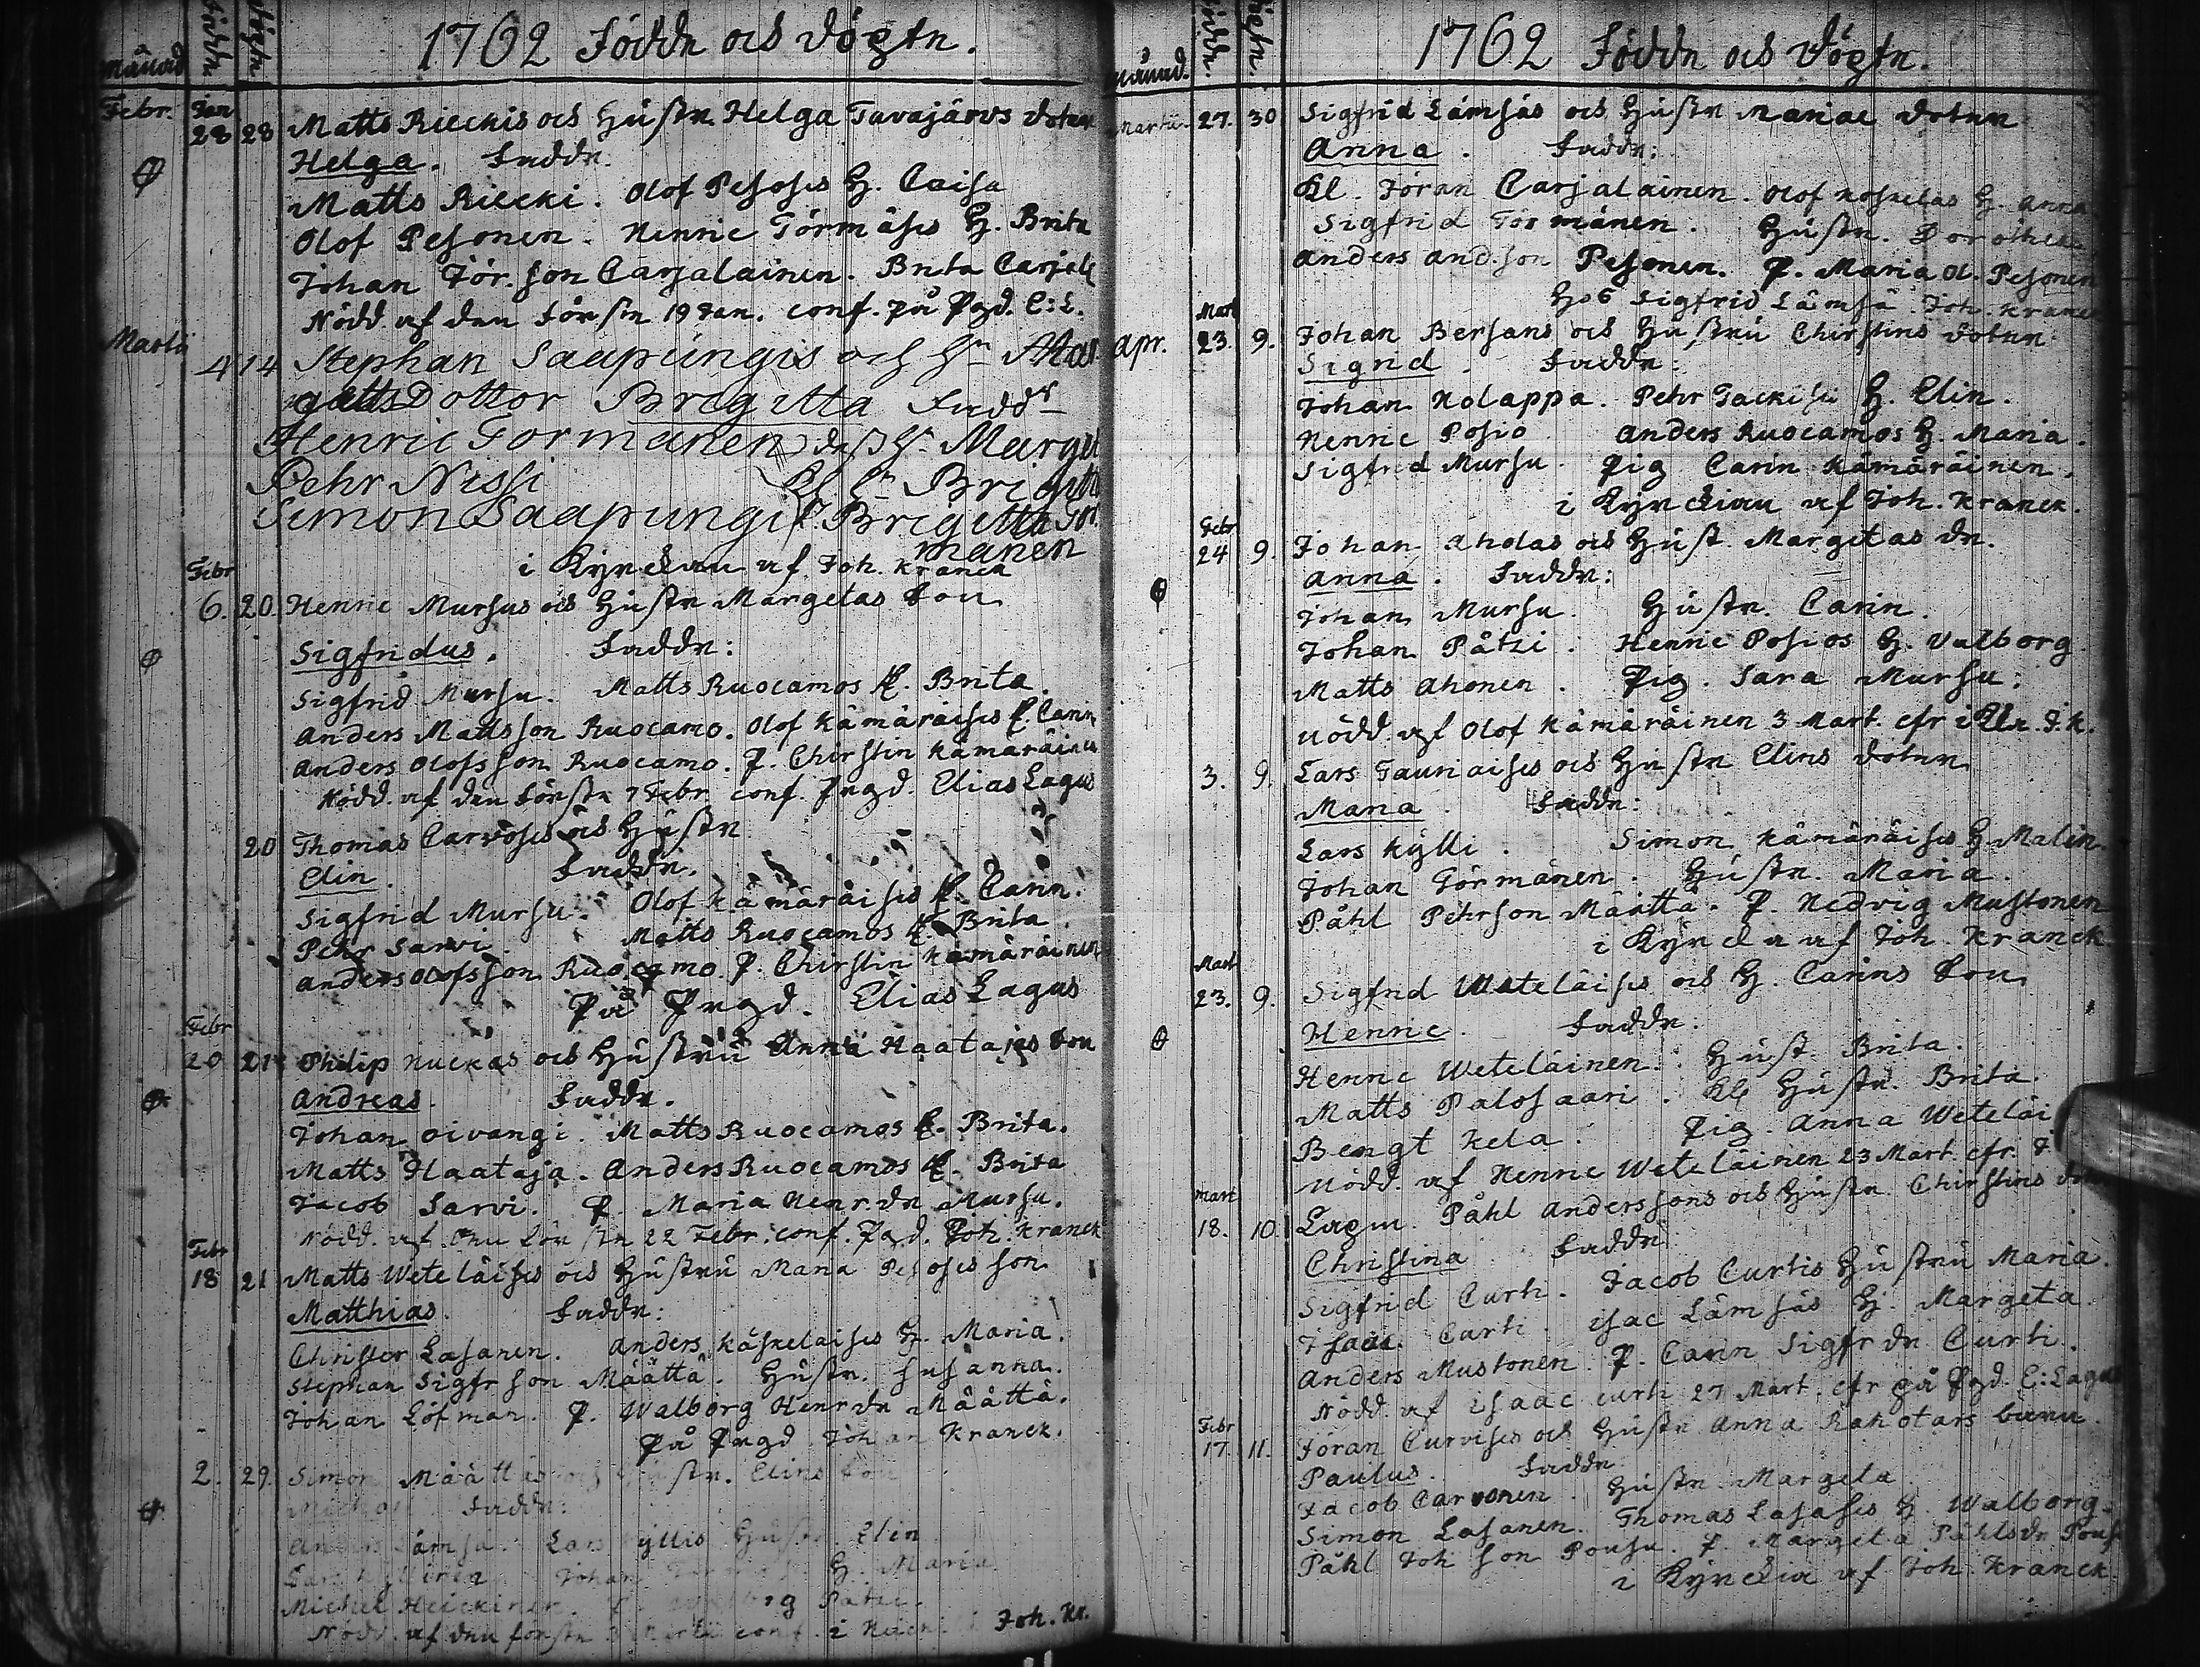 1762 Födde och Döpte.
Månad Födde Döpte
Febr. Jan 28 28 Matts Rieckis och Hustr. Helga Tavajärvs dotter
Helga. Faddr.
Matts Riecki. Olof Pesoses H. Caisa
Olof Pesonen. Henric Törmäses H. Brita
Johan Jör.son Carjalainen. Brita Carjal
Nödd. af den förste 19 Jan. conf. på Pgd. E:L.
Martii 4 14 Stephan Saapungis och Hn Mar
getts Dottor Brigitta Faddr
Henric Tormanen dess Hr Marget
Pehr Nissi Hn Brigitta
Simon Saapungi P. Brigitta Tor
manen
i Kyrckan af Joh. Kranck
Febr 6. 20. Henric Mursus och Hustr Margetas Son
Sigfridus. Faddr:
Sigfrid Mursu. Matts Ruocamos H. Brita.
Anders Mattsson Ruocamo. Olof Kämäräises H. Carin
Anders Olofsson Ruocamo. P. Chirstin Kämäräinen
Nödd. af den förste 7 Febr conf. Prgd. Elias Lagus
20 Thomas Carvoses och Hustr
Elin. Faddr.
Sigfrid Mursu. Olof Kämäräises H. Carin.
Pehr Sarvi Matts Ruocamos H Brita
Anders Olofsson Ruocamo. P. Chirstin Kämäräinen
På Prgd. Elias Lagus
Febr 20 21 Philip Huckas och Hustru Anna Haatajas Son
Andreas. Faddr.
Johan Oivangi. Matts Ruocamos H. Brita.
Matts Haataja. Anders Ruocamos H. Brita
Jacob Sarvi. P. Maria Henr.dr Mursu.
Nödd. af den förste 22 Febr. conf. Pgd. Joh. Kranck
Febr 18 21 Matts Weteläises och Hustru Maria Pesoses son
Matthias. Faddr:
Christer Lasanen. Anders Käskeläises H. Maria.
Stephan Sigfr son Määttä. Hustr. Susanna.
Johan Löfman. P. Walborg Henrdr Määttä.
På Prgd Johan Kranck.
2. 29. Simon Määttäs och Hustr. Elins Son
Faddr:
Lämsä. Lars Kyllis Hustr. Elin
Johan H. Maria
Michel Heickinen. Pätzi.
Nödd. af den förste conf. i Joh. Kr.
1762 Födde och Döpte.
Månad. Födde. Döpte.
Martii. 27. 30 Sigfrid Lämsäs och Hustr Mariae dotter
Anna. Faddr:
Kl. Jöran Carjalainen. Olof Koskelas H. Anna
Sigfrid Törmänen. Hustr. Dorothea
Anders And.son Pesonen. P. Maria Ol. Pesonen
Hos Sigfrid Lämsä. Joh. Kranck
Apr. Mart 23. 9. Johan Bersans och Hustru Chirstins dotter
Sigrid. Faddr:
Johan Holappa. Pehr Tackisi H. Elin.
Henric Posio Anders Ruocamos H. Maria.
Sigfrid Mursu. Pig Carin Kämäräinen.
i Kyrckian af Joh. Kranck.
Febr 24 9. Johan Aholas och Hust Margetas dr.
Anna. Faddr:
Johan Mursu. Hustr. Carin.
Johan Pätzi. Henric Posios H. Valborg
Matts Ahonen. Pig. Sara Mursu.
Nödd. af Olof Kämäräinen 3 Mart. cfr i J.K.
3. 9. Lars Tauriaises och Hustr Elins dotter
Maria. Faddr:
Lars Kylli. Simon Kämäräises H. Malin.
Johan Törmänen. Hustr. Maria.
Påhl Pehrson Määttä. P. Hedvig Mustonen
i Kyrckia af Joh. Kranck
Mart 23. 9. Sigfrid Weteläises och H. Carins Son
Henric. Faddr.
Henric Weteläinen. Hust. Brita.
Matts Palosaari. Hustr. Brita.
Bengt Kela. Pig. Anna Weteläi
Nödd. af Henric Weteläinen 23 Mart. cfr. J
Mart 18. 10. Påhl Anderssons och Hustr. Chirstins dr
Christina Faddr
Sigfrid Curti. Jacob Curtis Hustru Maria.
Isaac Curti. Isac Lämsäs H. Margeta.
Anders Mustonen. P. Carin Sigfr dr Curti.
Nödd. af Isaac Curti 27 Mart. cfr på Pgd. E: Lagus
Febr 17. 11. Jöran Curvises och Hustr Anna Rahotars barn.
Paulus. Faddr
Jacob Carvonen. Hustr. Margeta
Simon Lasanen. Thomas Lasases H. Walborg.
Påhl Joh son Pousu. P. Margeta Påhlsdr Pousu
i Kyrckia af Joh. Kranck.